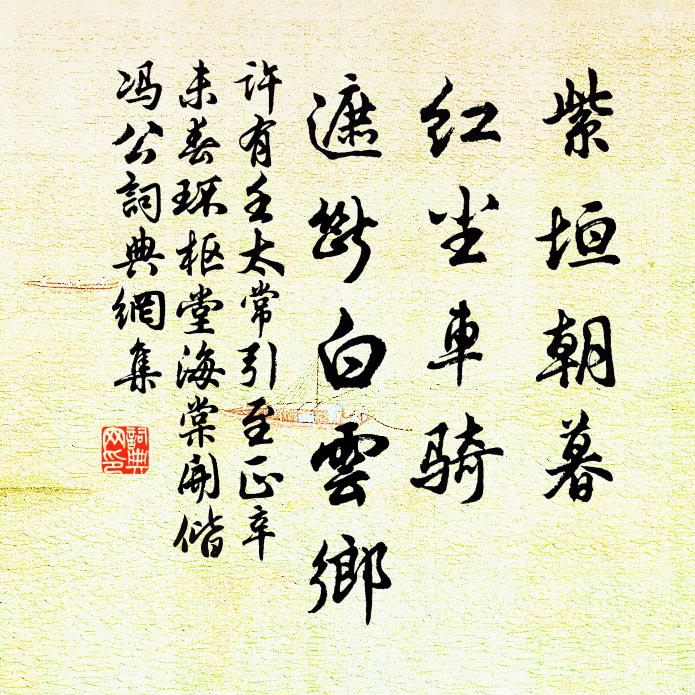 紫垣朝暮
紅尘車骑
遮斷白雲鄉
许有壬太常引至正辛
未春环枢堂海棠開偕
冯公詞典網集
詞典網印